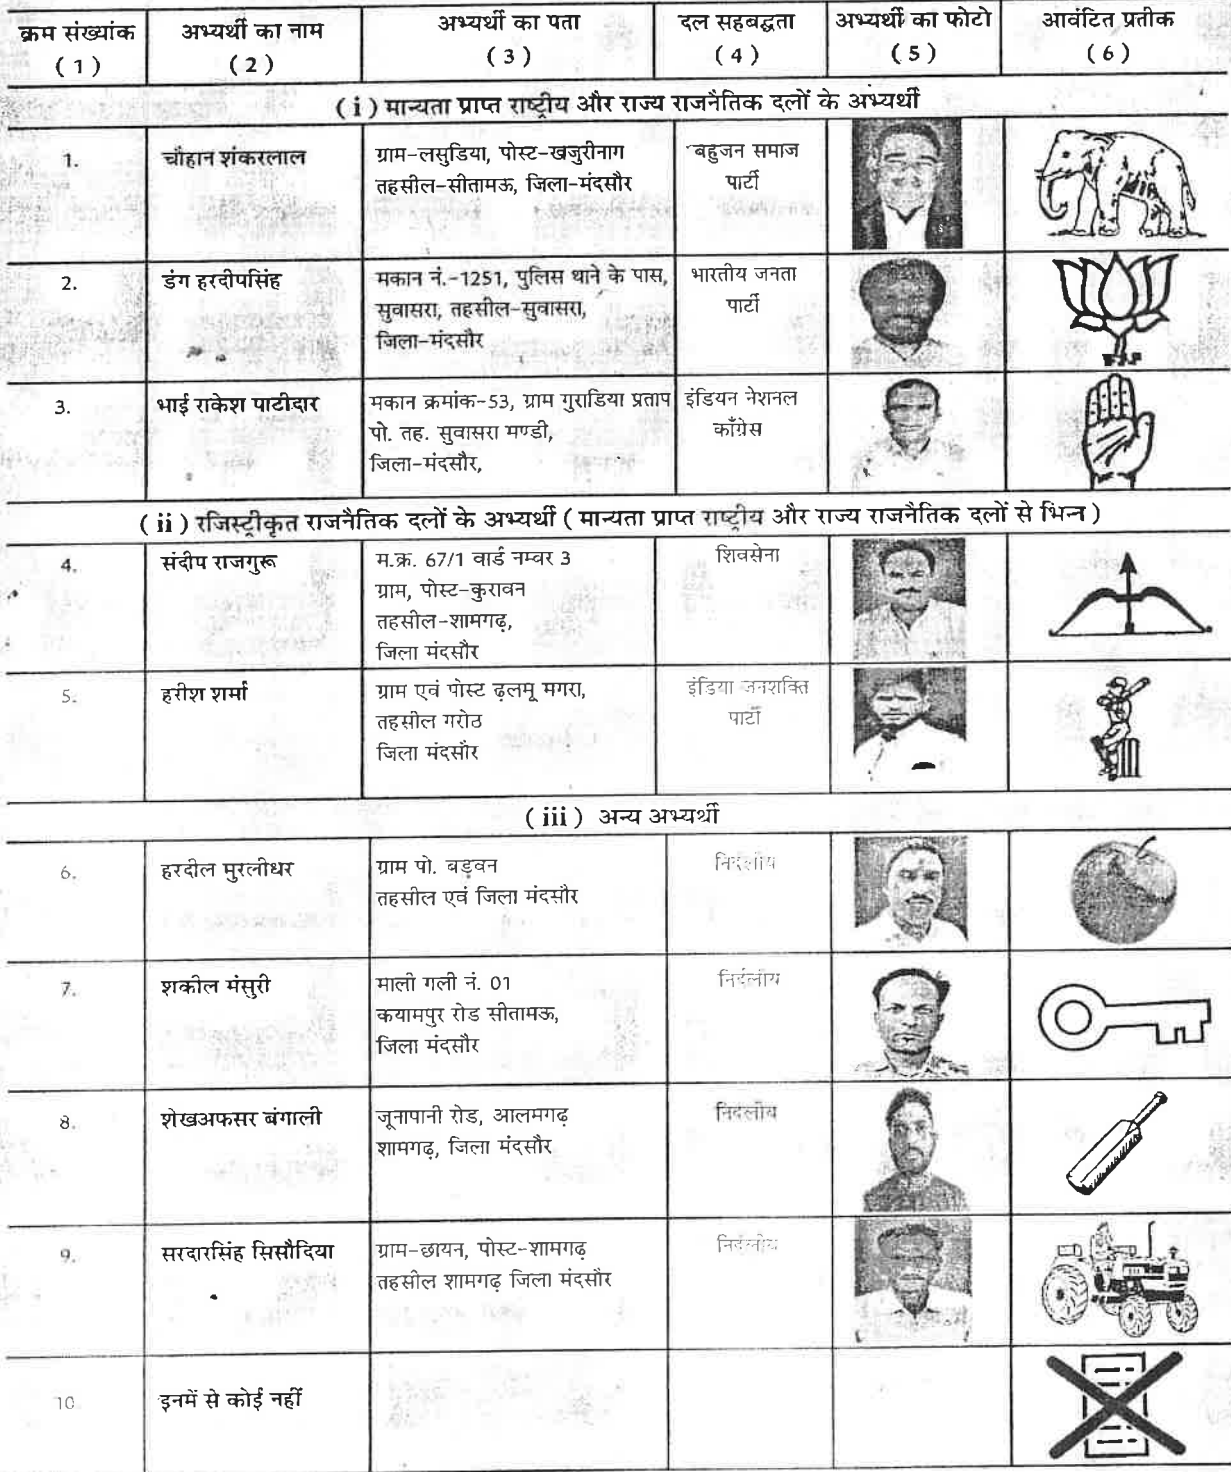 क्रम संख्यांक
( 1 )
अभ्यर्थी का नाम
( 2 )
अभ्यर्थी का पता
( 3 )
दल सहबद्धता
( 4 )
अभ्यर्थी का फोटो
( 5 )
आवंटित प्रतीक
( 6 )
( i ) मान्यता प्राप्त राष्ट्रीय और राज्य राजनैतिक दलों के अभ्यर्थी
1.
चौहान शंकरलाल
ग्राम-लसुडिया, पोस्ट-खजुरीनाग
तहसील-सीतामऊ, जिला-मंदसौर
बहुजन समाज
पार्टी
2.
डंग हरदीपसिंह
मकान नं.-1251, पुलिस थाने के पास,
सुवासरा, तहसील-सुवासरा,
जिला-मंदसौर
भारतीय जनता
पार्टी
3.
भाई राकेश पाटीदार
मकान क्रमांक-53, ग्राम गुराडिया प्रताप
पो. तह. सुवासरा मण्डी,
जिला-मंदसौर,
इंडियन नेशनल
काँग्रेस
( ii ) रजिस्ट्रीकृत राजनैतिक दलों के अभ्यर्थी ( मान्यता प्राप्त राष्ट्रीय और राज्य राजनैतिक दलों से भिन्न )
4.
संदीप राजगुरू
म.क्र. 67/1 वार्ड नम्वर 3
ग्राम, पोस्ट-कुरावन
तहसील-शामगढ़,
जिला मंदसौर
शिवसेना
5.
हरीश शर्मा
ग्राम एवं पोस्ट ढ़लमू मगरा,
तहसील गरोठ
जिला मंदसौर
इंडिया जनशक्ति
पार्टी
( iii ) अन्य अभ्यर्थी
6.
हरदील मुरलीधर
ग्राम पो. बड़वन
तहसील एवं जिला मंदसौर
निर्दलीय
7.
शकील मंसुरी
माली गली नं. 01
कयामपुर रोड सीतामऊ,
जिला मंदसौर
निर्दलीय
8.
शेखअफसर बंगाली
जूनापानी रोड, आलमगढ़
शामगढ़, जिला मंदसौर
निर्दलीय
9.
सरदारसिंह सिसौदिया
ग्राम-छायन, पोस्ट-शामगढ़
तहसील शामगढ़ जिला मंदसौर
निर्दलीय
10.
इनमें से कोई नहीं